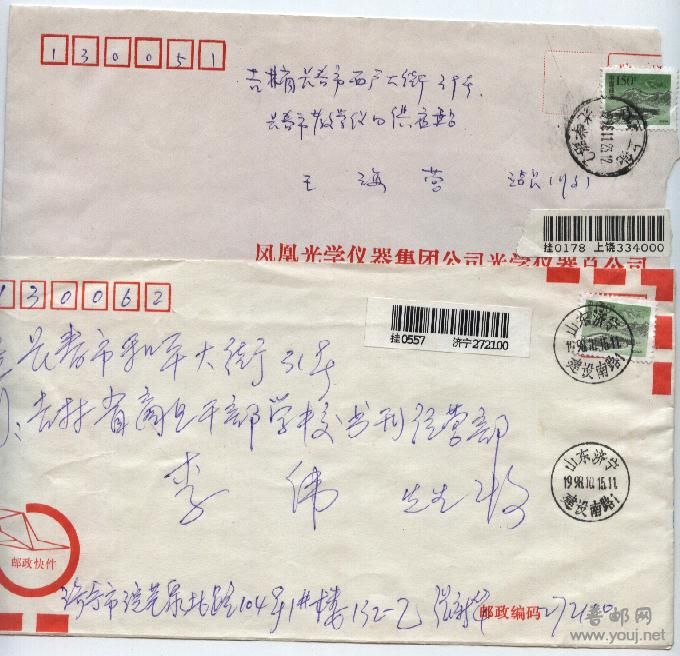 130051
150
吉林省长春市西广大街39号
长春市教学仪口供应站
王海营 站长(收)
挂0178 上饶334000
凤凰光学仪器集团公司光学仪器总公司
130062
长春市和平大街31号
吉林省商业干部学校书刊经营部
李伟 先生收
挂0557 济宁272100
山东济宁
1998.10.15.11
建设南路1
山东济宁
1998.10.15.11
建设南路1
邮政快件
104号1#楼132-乙
邮政编码 272100
喜邮网
www.youj.net